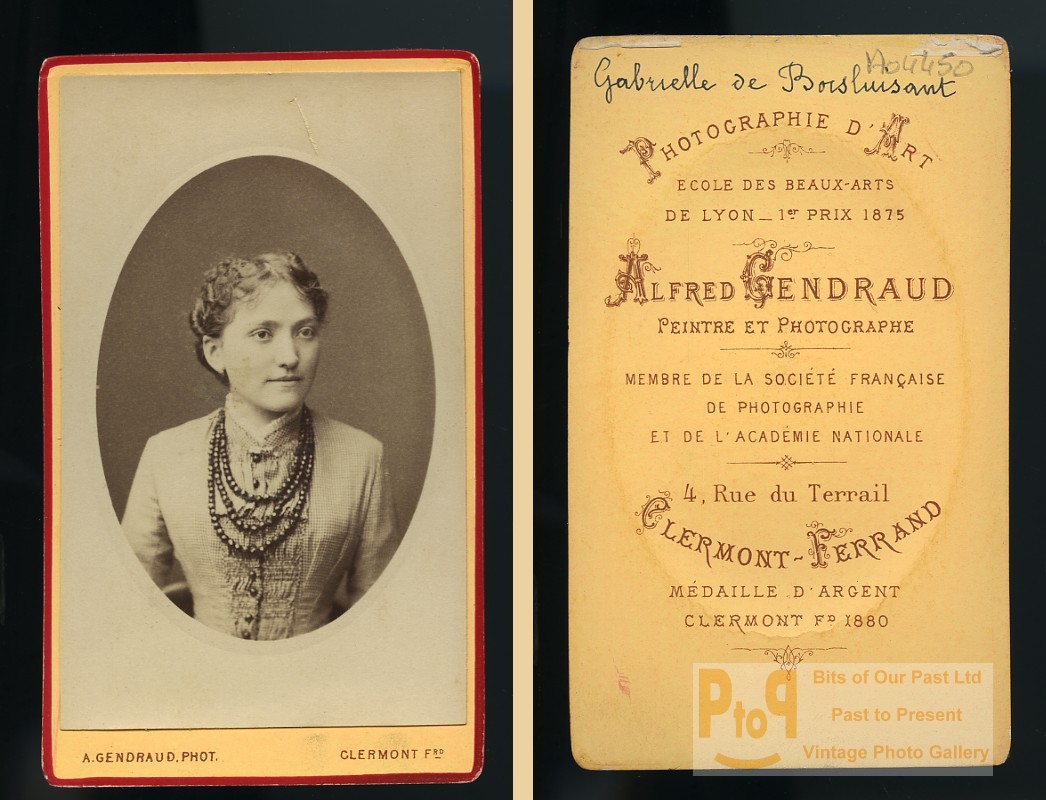 A. GENDRAUD, PHOT. CLERMONT FRD
A04450
Gabrielle de Boisluisant
PHOTOGRAPHIE D'ART
ECOLE DES BEAUX-ARTS
DE LYON _ 1er PRIX 1875
ALFRED GENDRAUD
PEINTRE ET PHOTOGRAPHE
MEMBRE DE LA SOCIÉTÉ FRANÇAISE
DE PHOTOGRAPHIE
ET DE L'ACADÉMIE NATIONALE
4, Rue du Terrail
CLERMONT-FERRAND
MÉDAILLE D'ARGENT
CLERMONT FD 1880
PtoP
Bits of Our Past Ltd
Past to Present
Vintage Photo Gallery